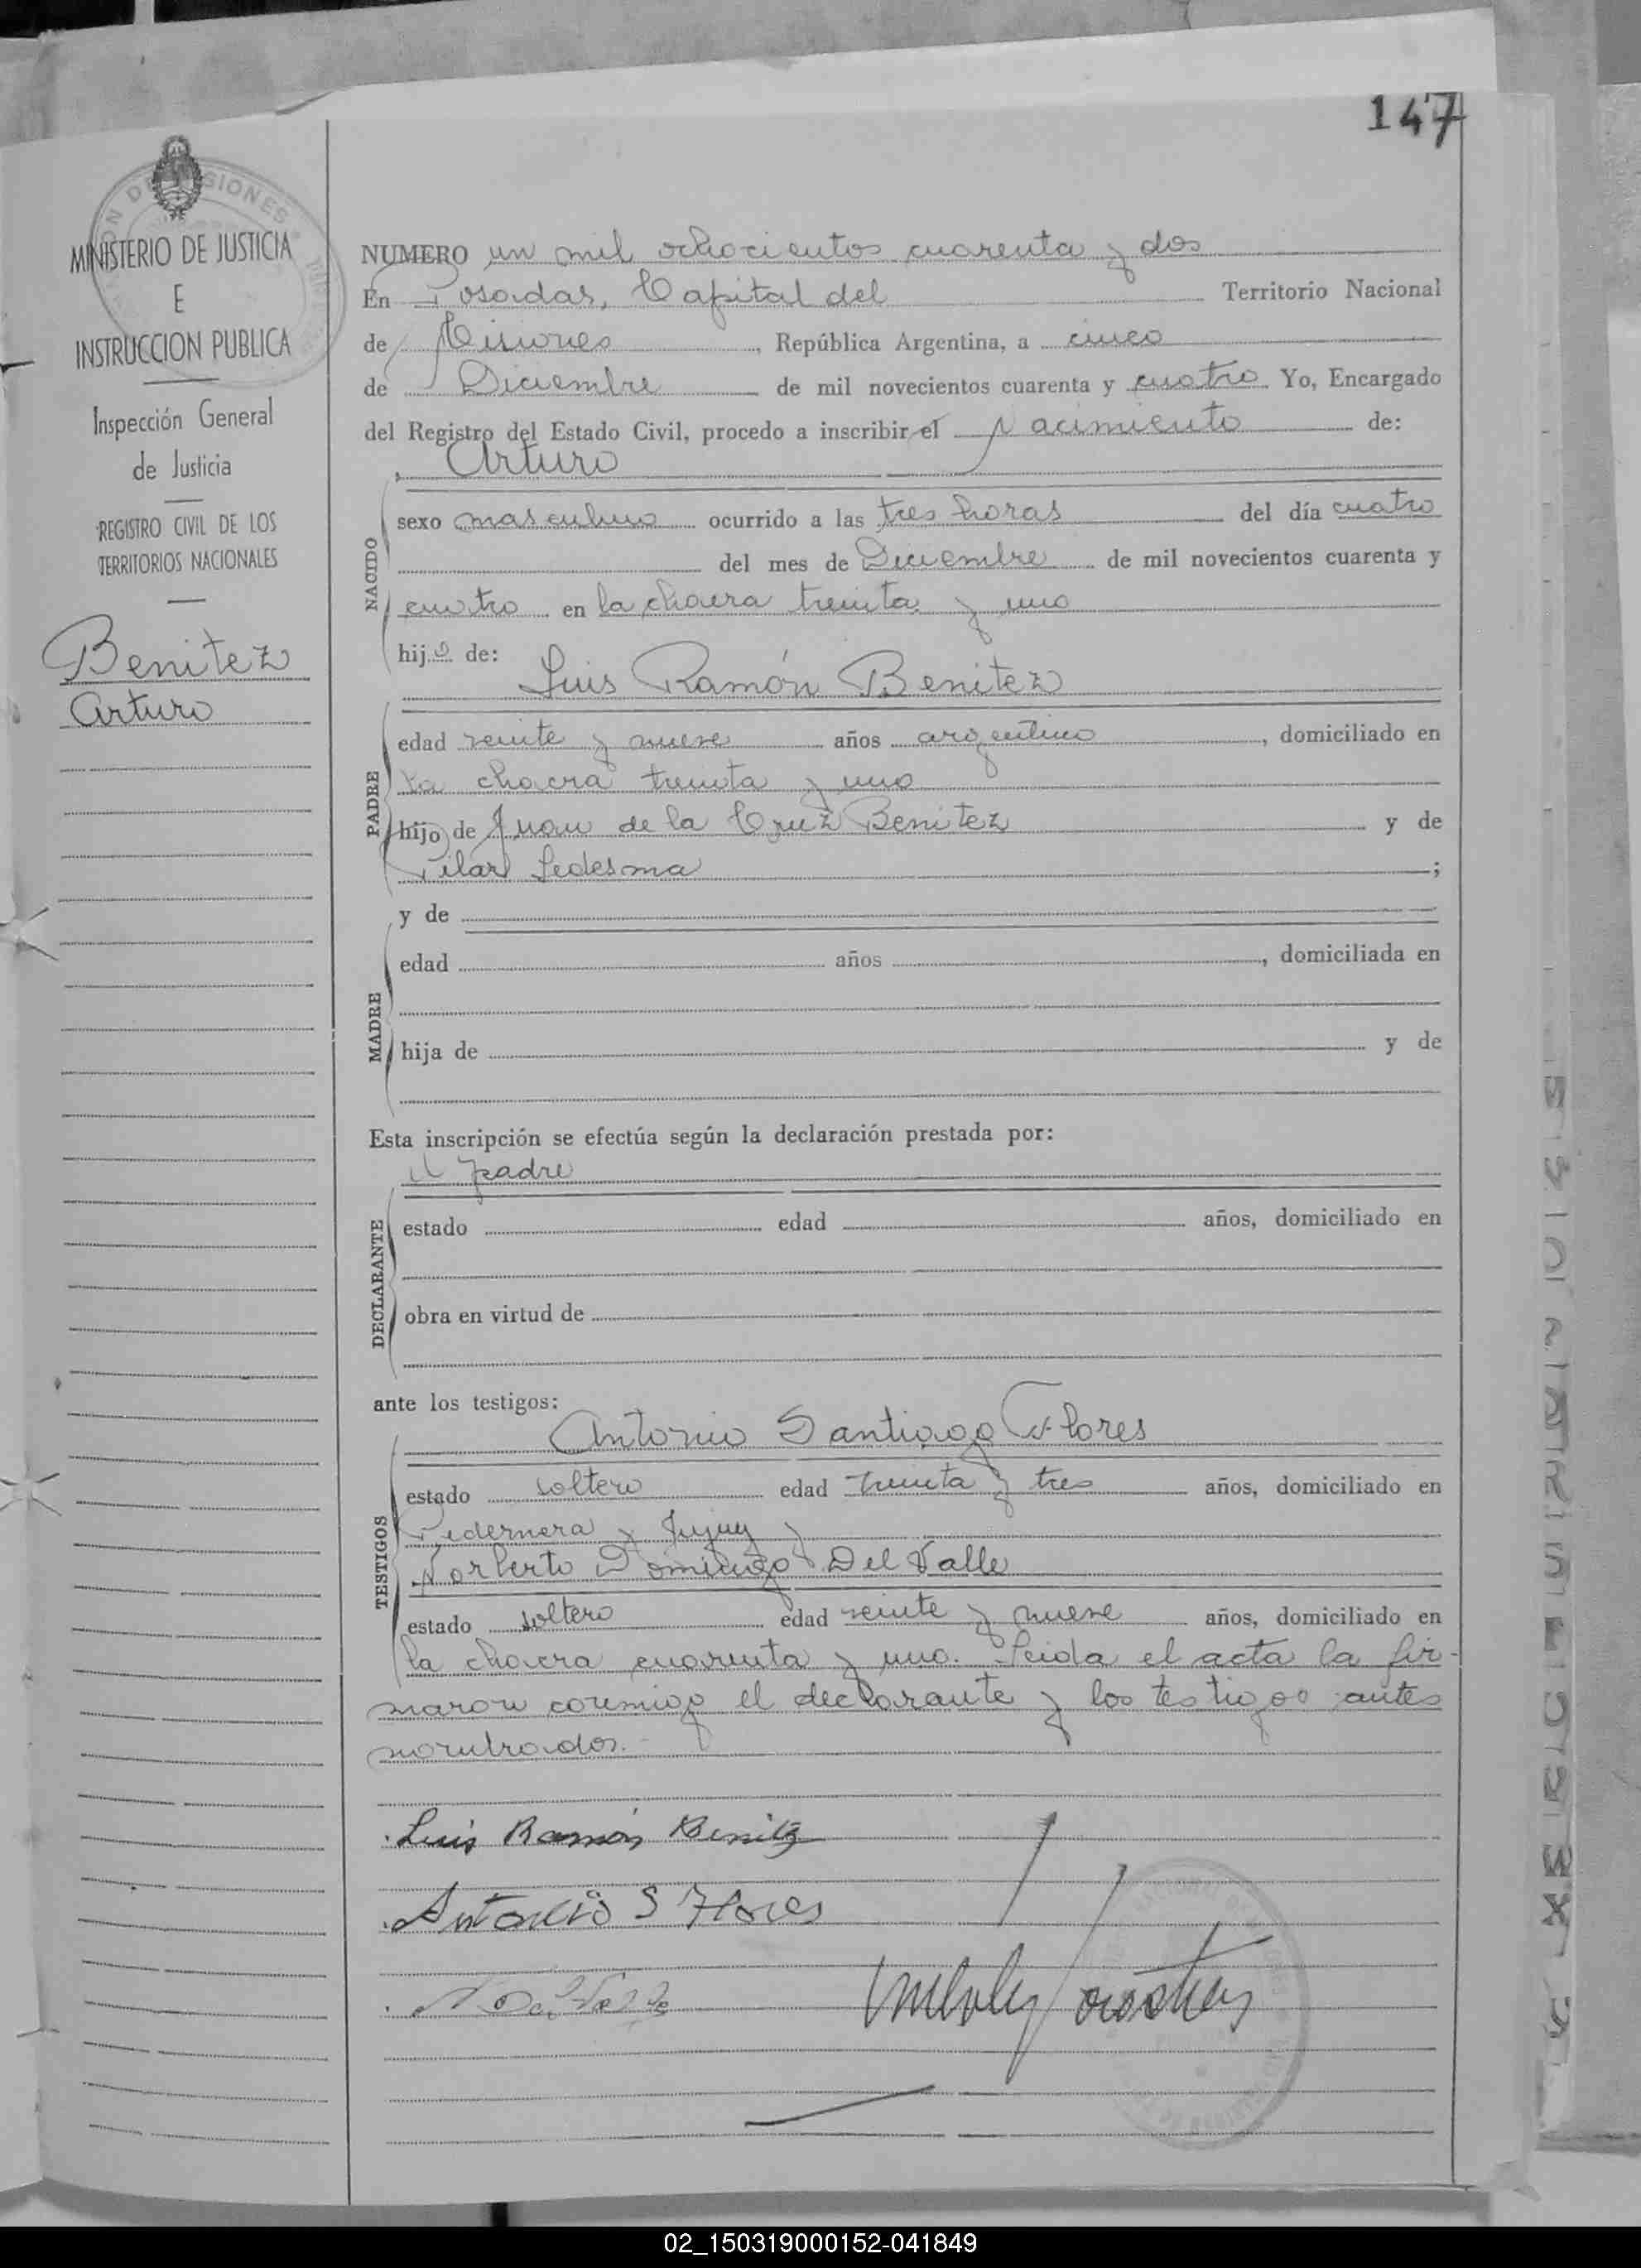 147
MINISTERIO DE JUSTICIA
E
INSTRUCCION PUBLICA
Inspección General
de Justicia
REGISTRO CIVIL DE LOS
TERRITORIOS NACIONALES
Benitez
Arturo
NUMERO un mil ochocientos cuarenta y dos
En Posadas, Capital del Territorio Nacional
de Misiones, República Argentina, a cinco
de Diciembre de mil novecientos cuarenta y cuatro Yo, Encargado
del Registro del Estado Civil, procedo a inscribir el Nacimiento de:
Arturo
NACIDO
sexo masculino ocurrido a las tres horas del día cuatro
del mes de Diciembre de mil novecientos cuarenta y
cuatro en la chacra treinta y uno
hijo de:
Luis Ramón Benitez
PADRE
edad veinte y nueve años argentino, domiciliado en
la chacra treinta y uno
hijo de Juan de la Cruz Benitez y de
Pilar Ledesma ;
MADRE
y de
edad años , domiciliada en
hija de y de
Esta inscripción se efectúa según la declaración prestada por:
el padre
DECLARANTE
estado edad años, domiciliado en
obra en virtud de
ante los testigos:
Antonio Santiago Flores
TESTIGOS
estado soltero edad treinta y tres años, domiciliado en
Pedernera y Jujuy y
Norberto Domingo Del Valle
estado soltero edad veinte y nueve años, domiciliado en
la chacra cuarenta y uno. Leida el acta la fir-
maron conmigo el declarante y los testigos antes
nombrados.-
Luis Ramón Benitez
Antonio S Flores
N Del Valle
02_150319000152-041849